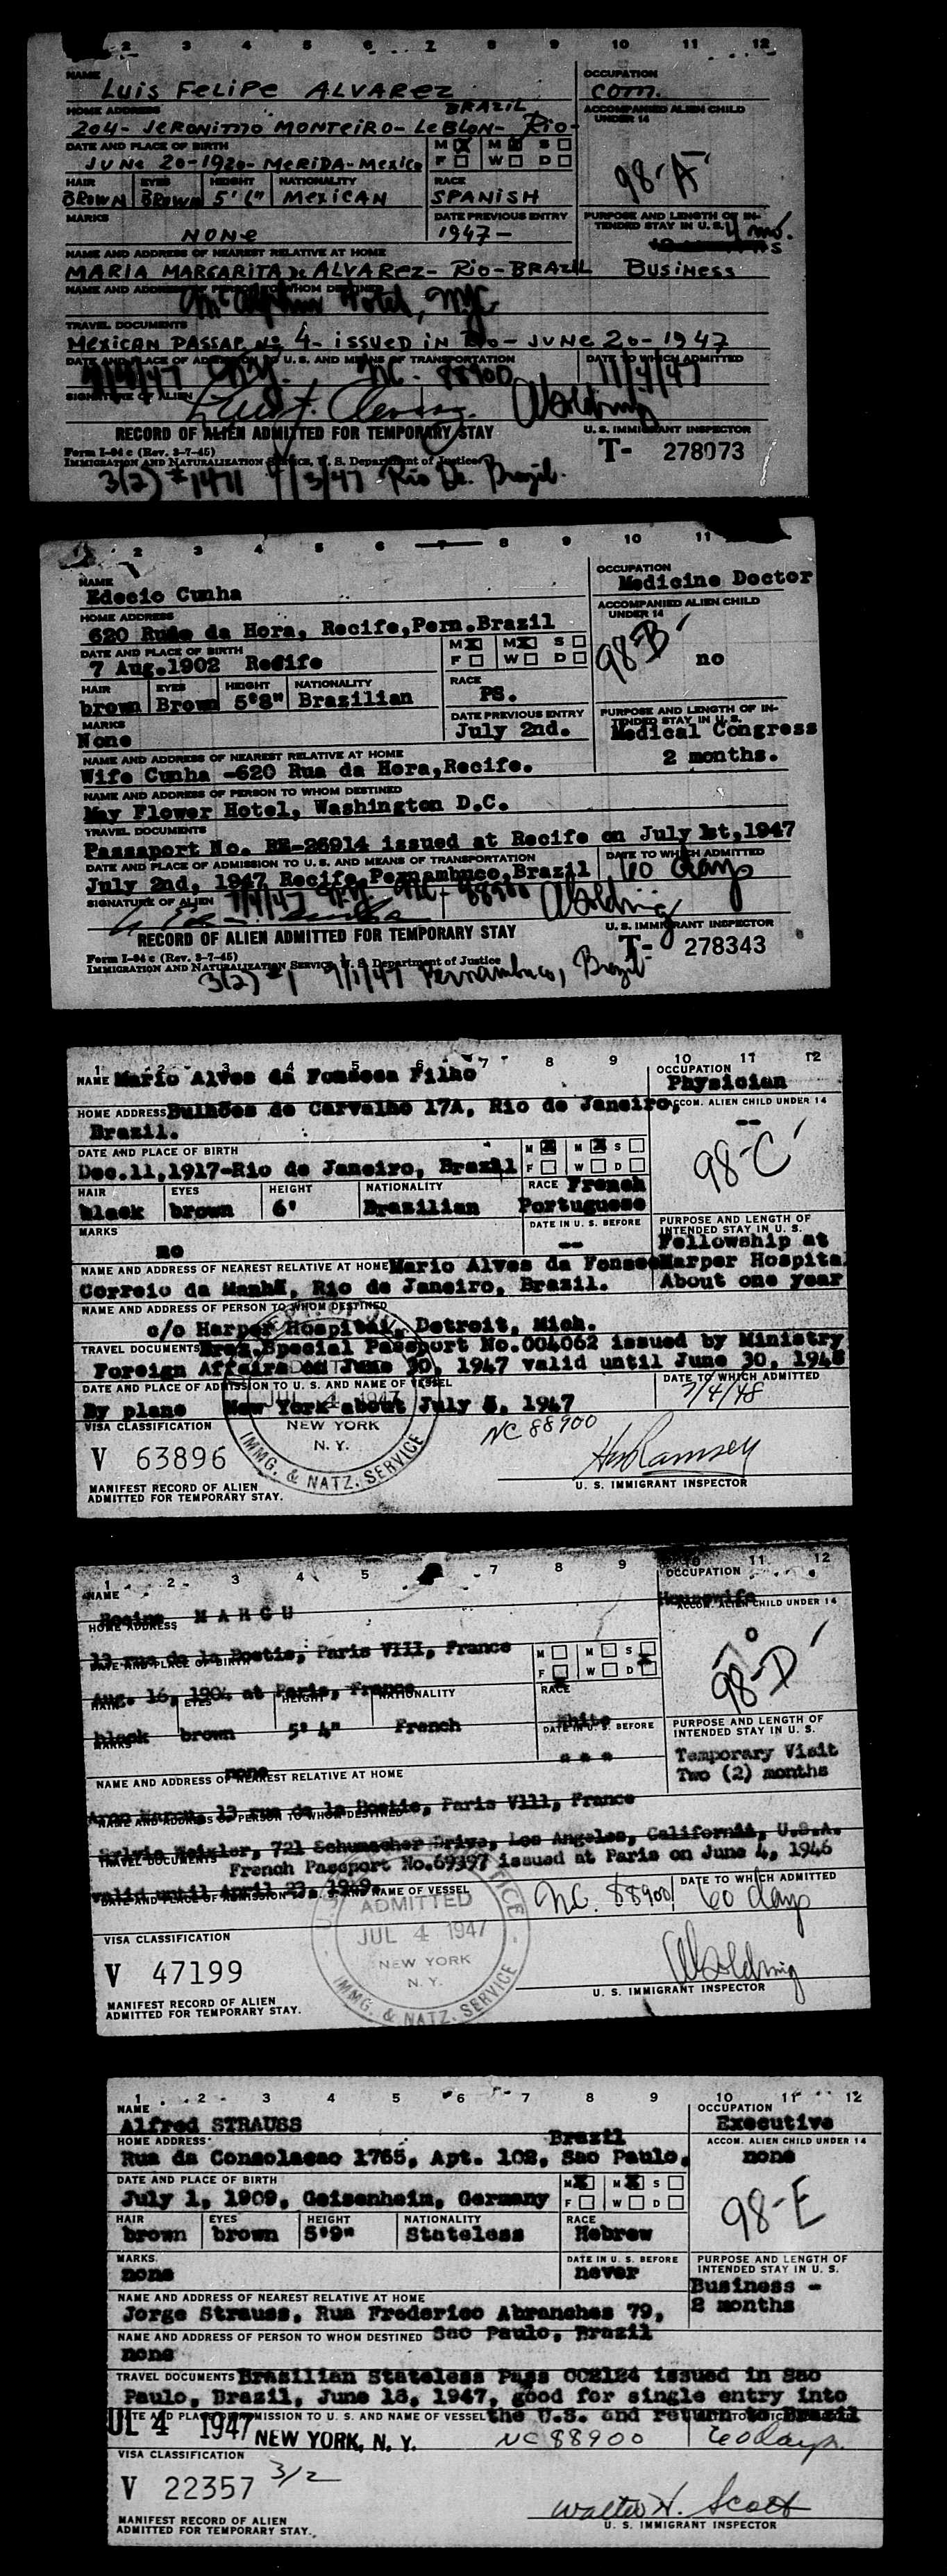 2 3 4 5 6 7 8 9 10 11 12
NAME OCCUPATION
Luis Felipe ALVAREZ com.
HOME ADDRESS BRAZIL ACCOMPANIED ALIEN CHILD UNDER 14
204- JERONIMO MONTEIRO- LEBLON- Rio-
DATE AND PLACE OF BIRTH M M S
JUNE 20-1920- MERIDA-Mexico F W D
98-A
HAIR EYES HEIGHT NATIONALITY RACE
BROWN BROWN 5'6" MEXICAN SPANISH
MARKS DATE PREVIOUS ENTRY PURPOSE AND LENGTH OF INTENDED STAY IN U. S.
NONE 1947- 4 mo.
NAME AND ADDRESS OF NEAREST RELATIVE AT HOME
MARIA MARGARITA de ALVAREZ- Rio-BRAZIL Business
NAME AND ADDRESS OF PERSON TO WHOM DESTINED
Hotel, NYC
TRAVEL DOCUMENTS
MEXICAN PASSAP. No 4- ISSUED IN Rio- JUNE 20-1947
DATE AND PLACE OF ADMISSION TO U. S. AND MEANS OF TRANSPORTATION DATE TO WHICH ADMITTED
7/4/47 NYC. NC. 88900 11/4/47
SIGNATURE OF ALIEN
RECORD OF ALIEN ADMITTED FOR TEMPORARY STAY U. S. IMMIGRANT INSPECTOR
Form I-94 c (Rev. 3-7-45) T- 278073
IMMIGRATION AND NATURALIZATION SERVICE, U. S. Department of Justice
3(2) #1471 7/3/47 Rio de. Brazil.
2 3 4 5 6 8 9 10 11
NAME OCCUPATION
Edecio Cunha Medicine Doctor
HOME ADDRESS ACCOMPANIED ALIEN CHILD UNDER 14
620 Rua da Hora, Recife,Pern.Brazil
DATE AND PLACE OF BIRTH M M S
7 Aug.1902 Recife F W D
98B no
HAIR EYES HEIGHT NATIONALITY RACE
brown Brown 5'8" Brazilian PS.
MARKS DATE PREVIOUS ENTRY PURPOSE AND LENGTH OF INTENDED STAY IN U. S.
None July 2nd. Medical Congress
NAME AND ADDRESS OF NEAREST RELATIVE AT HOME 2 months.
Wife Cunha -620 Rua da Hora,Recife.
NAME AND ADDRESS OF PERSON TO WHOM DESTINED
May Flower Hotel, Washington D.C.
TRAVEL DOCUMENTS
Passaport No. RE-26914 issued at Recife on July 1st,1947
DATE AND PLACE OF ADMISSION TO U. S. AND MEANS OF TRANSPORTATION DATE TO WHICH ADMITTED
July 2nd, 1947 Recife,Pernambuco,Brazil 60 days
SIGNATURE OF ALIEN 7/4/47 NYC NC- 88900
RECORD OF ALIEN ADMITTED FOR TEMPORARY STAY U. S. IMMIGRANT INSPECTOR
Form I-94 c (Rev. 3-7-45) T- 278343
IMMIGRATION AND NATURALIZATION SERVICE, U. S. Department of Justice
3(2) #1 7/1/47 Pernambuco, Brazil
1 2 3 4 5 6 7 8 9 10 11 12
NAME Mario Alves da Fonseca Filho OCCUPATION
Physician
HOME ADDRESS Bulhões de Carvalho 17A, Rio de Janeiro, ACCOM. ALIEN CHILD UNDER 14
Brazil. --
DATE AND PLACE OF BIRTH M M S
Dec.11,1917-Rio de Janeiro, Brazil F W D
98-C
HAIR EYES HEIGHT NATIONALITY RACE French
black brown 6' Brazilian Portuguese
MARKS DATE IN U. S. BEFORE PURPOSE AND LENGTH OF INTENDED STAY IN U. S.
no -- Fellowship at
NAME AND ADDRESS OF NEAREST RELATIVE AT HOME Mario Alves da Fonseca Harper Hospital
Correio da Manhã, Rio de Janeiro, Brazil. About one year
NAME AND ADDRESS OF PERSON TO WHOM DESTINED
c/o Harper Hospital, Detroit, Mich.
TRAVEL DOCUMENTS Braz.Special Passport No.004062 issued by Ministry
Foreign Affairs on June 30, 1947 valid until June 30, 1948
DATE AND PLACE OF ADMISSION TO U. S. AND NAME OF VESSEL DATE TO WHICH ADMITTED
By plane New York about July 3, 1947 7/4/48
JUL 4 1947
VISA CLASSIFICATION NEW YORK NC 88900
V 63896 N. Y.
IMMG. & NATZ. SERVICE
MANIFEST RECORD OF ALIEN U. S. IMMIGRANT INSPECTOR
ADMITTED FOR TEMPORARY STAY.
1 2 3 4 5 7 8 9 10 11 12
NAME OCCUPATION
Rosine MARCU Housewife
HOME ADDRESS ACCOM. ALIEN CHILD UNDER 14
13 rue de la Boetie, Paris VIII, France 0
DATE AND PLACE OF BIRTH M M S
Aug. 16, 1904 at Paris, France F W D
98-D
HAIR EYES HEIGHT NATIONALITY RACE
black brown 5' 4" French White
MARKS DATE IN U. S. BEFORE PURPOSE AND LENGTH OF INTENDED STAY IN U. S.
none Temporary Visit
NAME AND ADDRESS OF NEAREST RELATIVE AT HOME Two (2) months
Aron Marcu, 13 rue de la Boetie, Paris VIII, France
NAME AND ADDRESS OF PERSON TO WHOM DESTINED
Sylvia Weixler, 721 Schumacher Drive, Los Angeles, California, U.S.A.
TRAVEL DOCUMENTS French Passport No.69397 issued at Paris on June 4, 1946
valid until April 23, 1949.
DATE AND PLACE OF ADMISSION TO U. S. AND NAME OF VESSEL DATE TO WHICH ADMITTED
ADMITTED NC. 88900 60 days
VISA CLASSIFICATION JUL 4 1947
V 47199 NEW YORK
N. Y.
IMMG. & NATZ. SERVICE
MANIFEST RECORD OF ALIEN U. S. IMMIGRANT INSPECTOR
ADMITTED FOR TEMPORARY STAY.
1 2 3 4 5 6 7 8 9 10 11 12
NAME OCCUPATION
Alfred STRAUSS Executive
HOME ADDRESS Brazil ACCOM. ALIEN CHILD UNDER 14
Rua da Consolacao 1765, Apt. 102, Sao Paulo, none
DATE AND PLACE OF BIRTH M M S
July 1, 1909, Geisenheim, Germany F W D
98-E
HAIR EYES HEIGHT NATIONALITY RACE
brown brown 5'9" Stateless Hebrew
MARKS. DATE IN U. S. BEFORE PURPOSE AND LENGTH OF INTENDED STAY IN U. S.
none never Business -
NAME AND ADDRESS OF NEAREST RELATIVE AT HOME 2 months
Jorge Strauss, Rua Frederico Abranches 79,
NAME AND ADDRESS OF PERSON TO WHOM DESTINED Sao Paulo, Brazil
none
TRAVEL DOCUMENTS Brasilian Stateless Pass 002124 issued in Sao
Paulo, Brazil, June 18, 1947, good for single entry into
DATE AND PLACE OF ADMISSION TO U. S. AND NAME OF VESSEL the U.S. and return to Brazil
JUL 4 1947 NEW YORK, N. Y. NC 88900 60 days.
VISA CLASSIFICATION
V 22357 3/2
Walter H. Scott
MANIFEST RECORD OF ALIEN U. S. IMMIGRANT INSPECTOR
ADMITTED FOR TEMPORARY STAY.